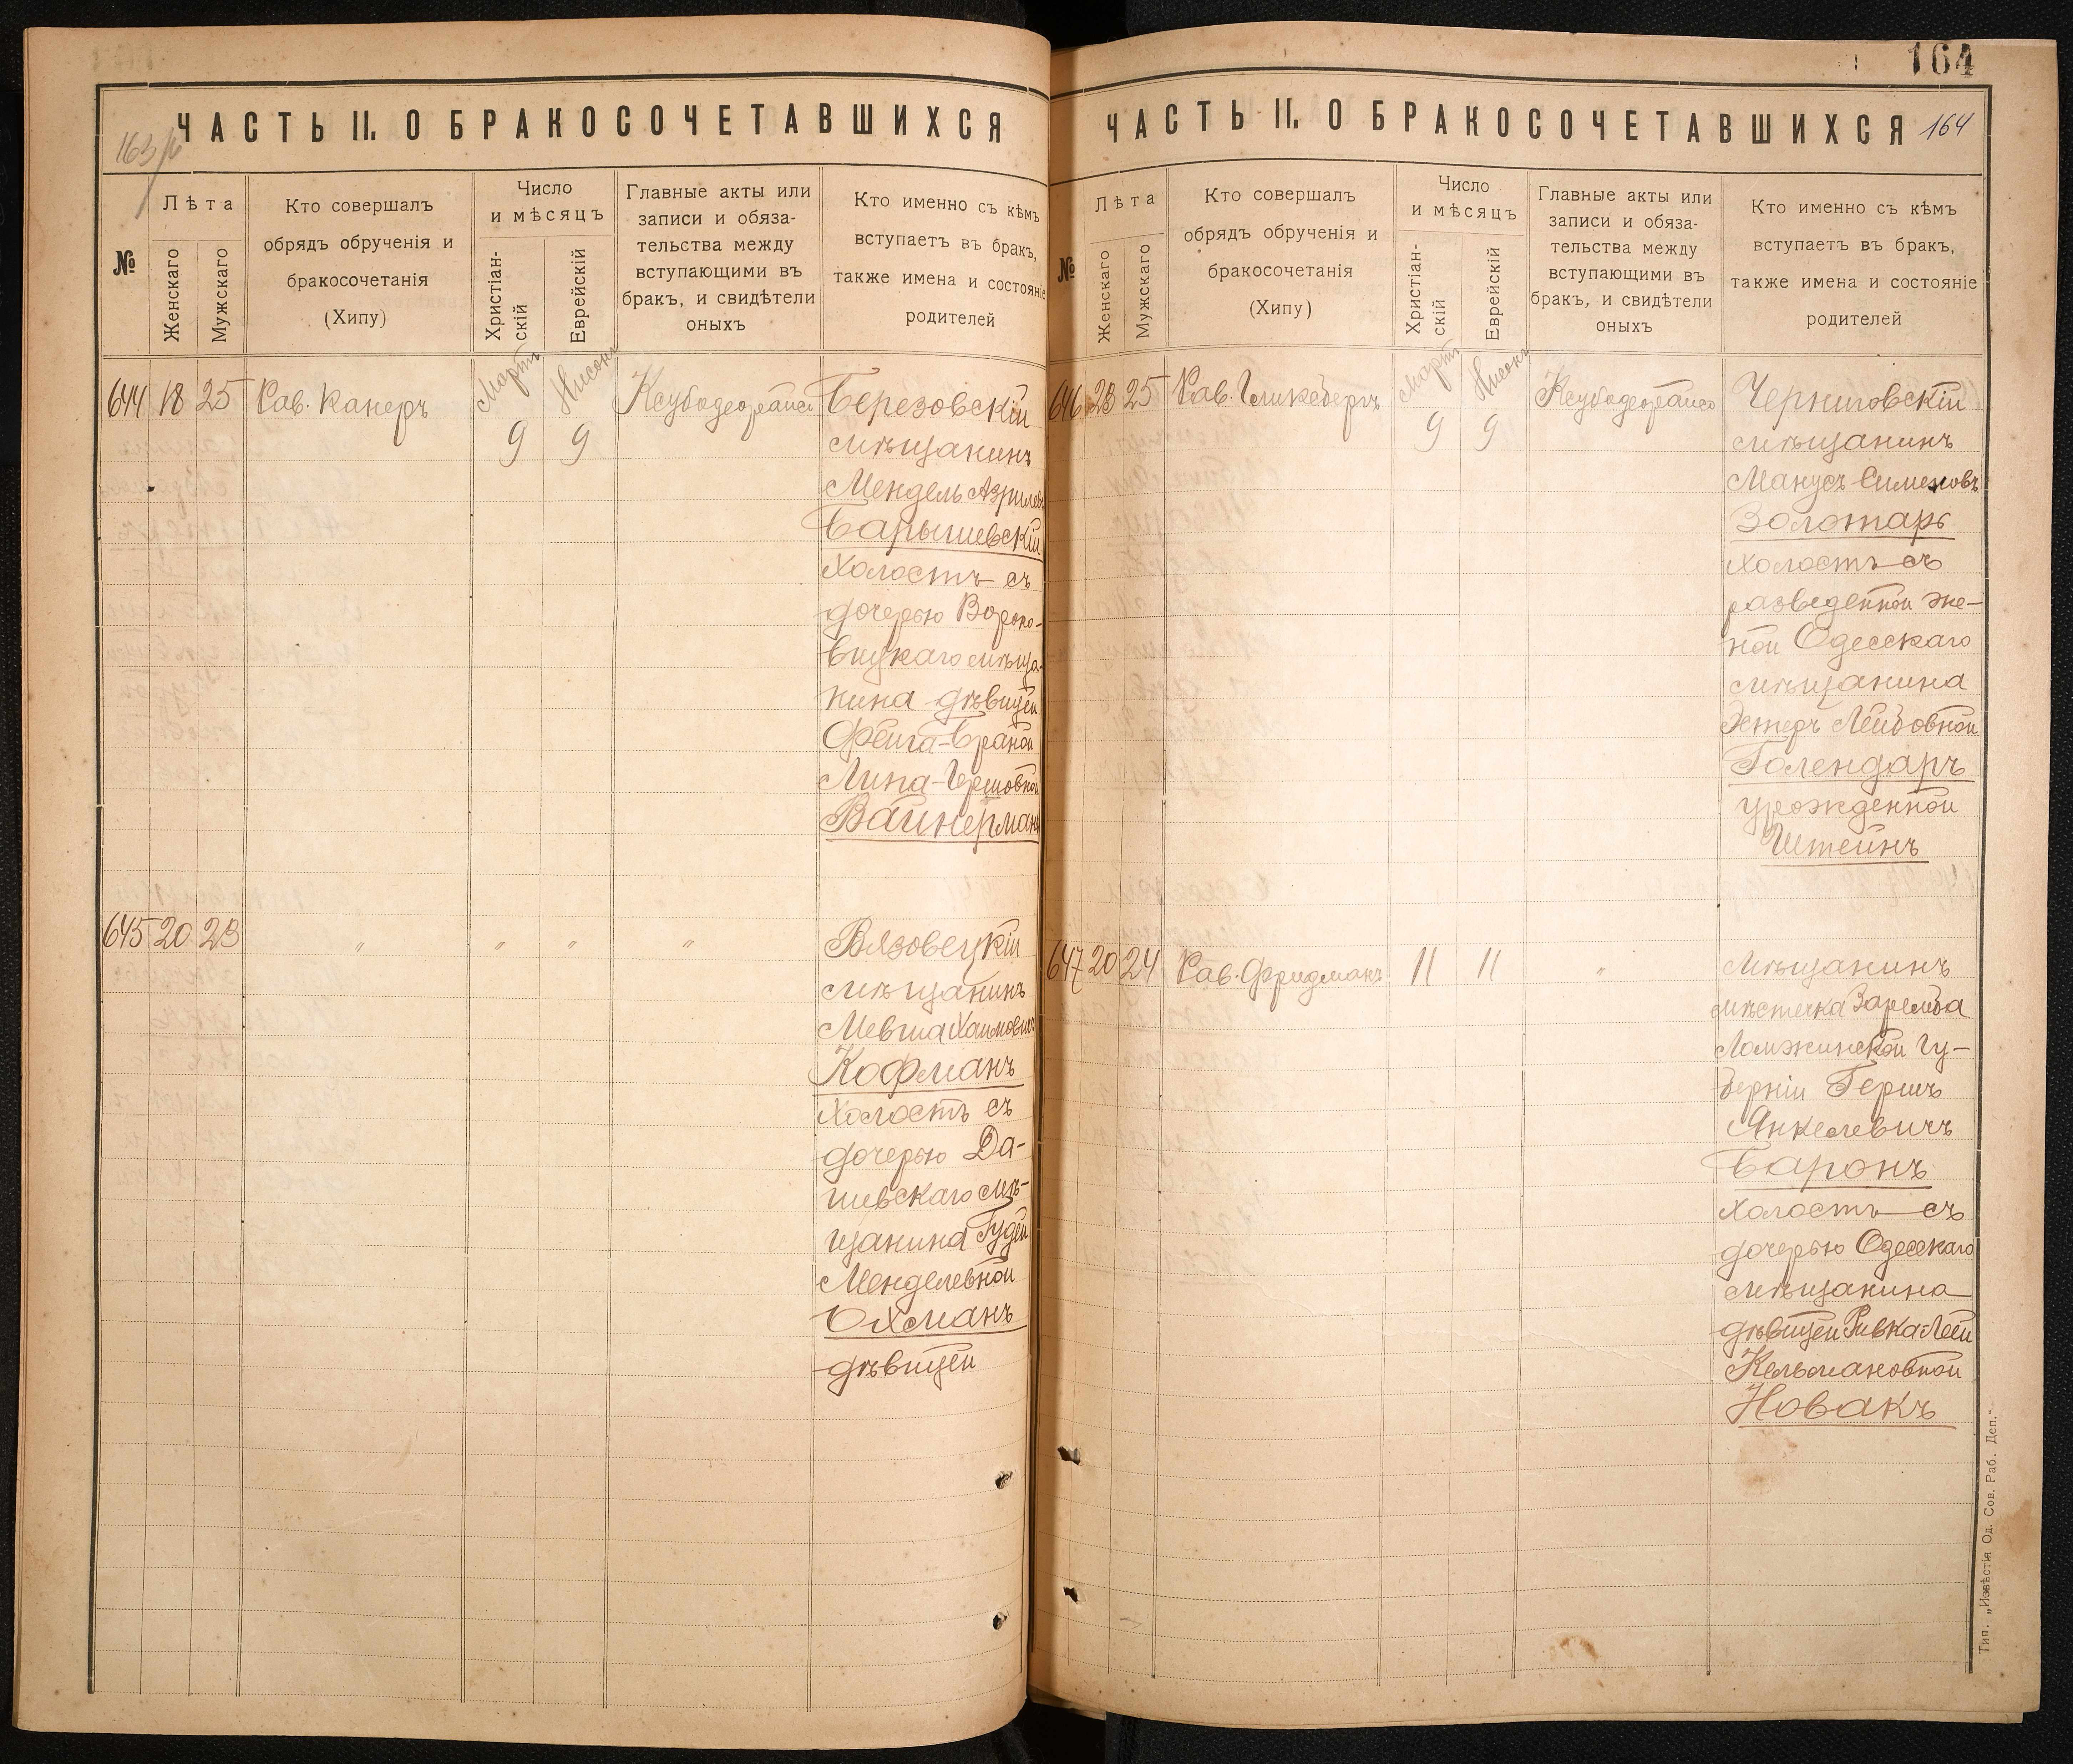 ЧАСТЬ II. О БРАКОСОЧЕТАВШИХСЯ
№
Лѣта
Женскаго
Мужскаго
Кто совершалъ
обрядъ обрученія и
бракосочетанія
(Хипу)
Число
и мѣсяцъ
Христіан-
скій
Еврейскій
Главные акты или
записи и обяза-
тельства между
вступающими въ
бракъ, и свидѣтели
оныхъ
Кто именно съ кѣмъ
вступаетъ въ бракъ,
также имена и состояніе
родителей
644 18 25 Рав. Канеръ
Мартъ Нисонъ
9 9
Березовскій
мѣщанинъ
Мендель Азрилев
Барышевскій
холостъ съ
дочерью Вороно-
вицкаго мѣща-
нина дѣвицей
Фейга-Браной
Липа-Гершовной
Вайнерманъ
645 20 23 " " " "
Вязовецкій
мѣщанинъ
Мевша Хаимовичъ
Кофманъ
холостъ съ
дочерью Да-
шевскаго мѣ-
щанина Гудей
Менделевной
Охманъ
дѣвицей
164
ЧАСТЬ II. О БРАКОСОЧЕТАВШИХСЯ 164
№
Лѣта
Женскаго
Мужскаго
Кто совершалъ
обрядъ обрученія и
бракосочетанія
(Хипу)
Число
и мѣсяцъ
Христіан-
скій
Еврейскій
Главные акты или
записи и обяза-
тельства между
вступающими въ
бракъ, и свидѣтели
оныхъ
Кто именно съ кѣмъ
вступаетъ въ бракъ,
также имена и состояніе
родителей
646 23 25 Рав. Гликсбергъ
Мартъ Нисонъ
9 9
Черниговскій
мѣщанинъ
Манусъ Симоновъ
Золотарь
холостъ съ
разведенной же-
ной Одесскаго
мѣщанина
Эстеръ Лейбовной
Голендаръ
урожденной
Штейнъ
647 20 24 Рав. Фридманъ 11 11 "
Мѣщанинъ
мѣстечка Заремба
Ломжинской гу-
берніи Гершъ
Янкелевичъ
Баронъ
холостъ съ
дочерью Одесскаго
мѣщанина
дѣвицей Ривка-Леей
Кельмановной
Новакъ
Тип. „Извѣстія Од. Сов. Раб. Деп."